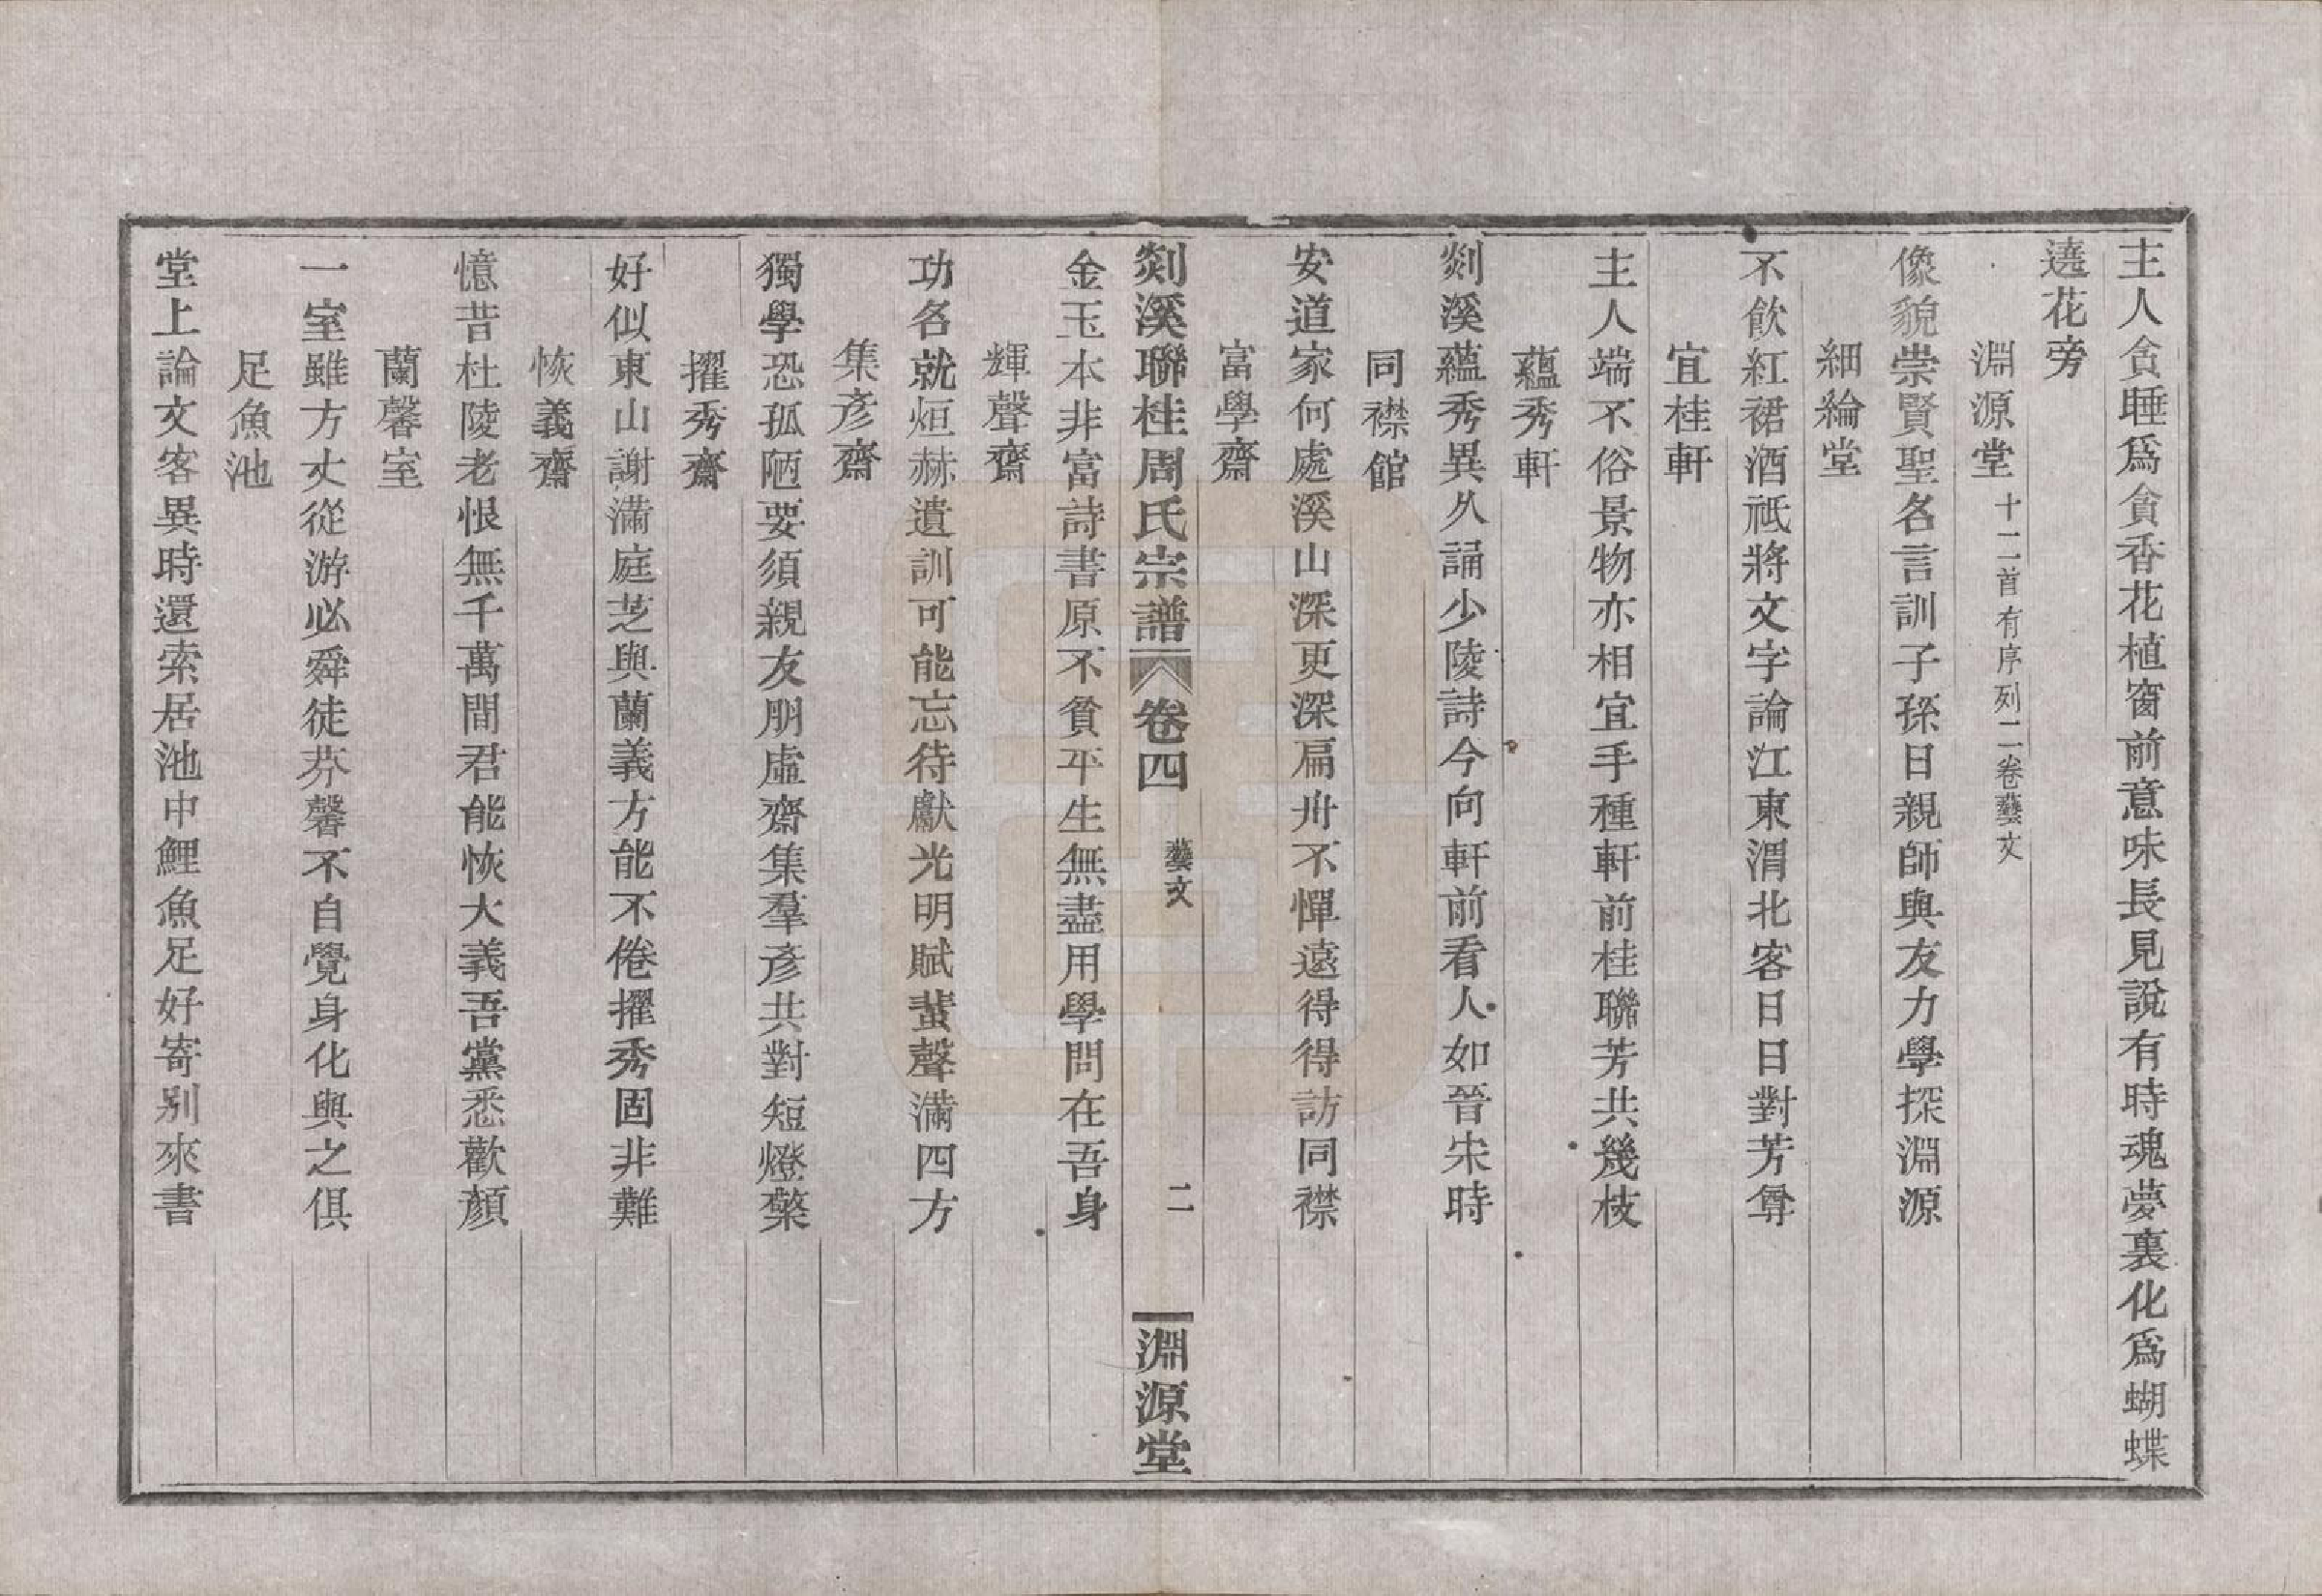 主人貪睡爲貪香花植窗前意味長見說有時魂夢裏化爲蝴蝶
遶花旁
淵源堂 十二首有序列二卷藝文
像貌崇賢聖名言訓子孫日親師與友力學探淵源
細綸堂
不飲紅裙酒祇將文字論江東渭北客日日對芳尊
宜桂軒
主人端不俗景物亦相宜手種軒前桂聯芳共幾枝
蘊秀軒
剡溪蘊秀異久誦少陵詩今向軒前看人如晉宋時
同襟館
安道家何處溪山深更深扁舟不憚遠得得訪同襟
富學齋
剡溪聯桂周氏宗譜 卷四 藝文 二 淵源堂
金玉本非富詩書原不貧平生無盡用學問在吾身
輝聲齋
功名就烜赫遺訓可能忘待獻光明賦蜚聲滿四方
集彥齋
獨學恐孤陋要須親友朋虛齋集羣彥共對短燈檠
擢秀齋
好似東山謝滿庭芝與蘭義方能不倦擢秀固非難
恢義齋
憶昔杜陵老恨無千萬間君能恢大義吾黨悉歡顏
蘭馨室
一室雖方丈從游必舜徒芬馨不自覺身化與之俱
足魚池
堂上論文客異時還索居池中鯉魚足好寄別來書